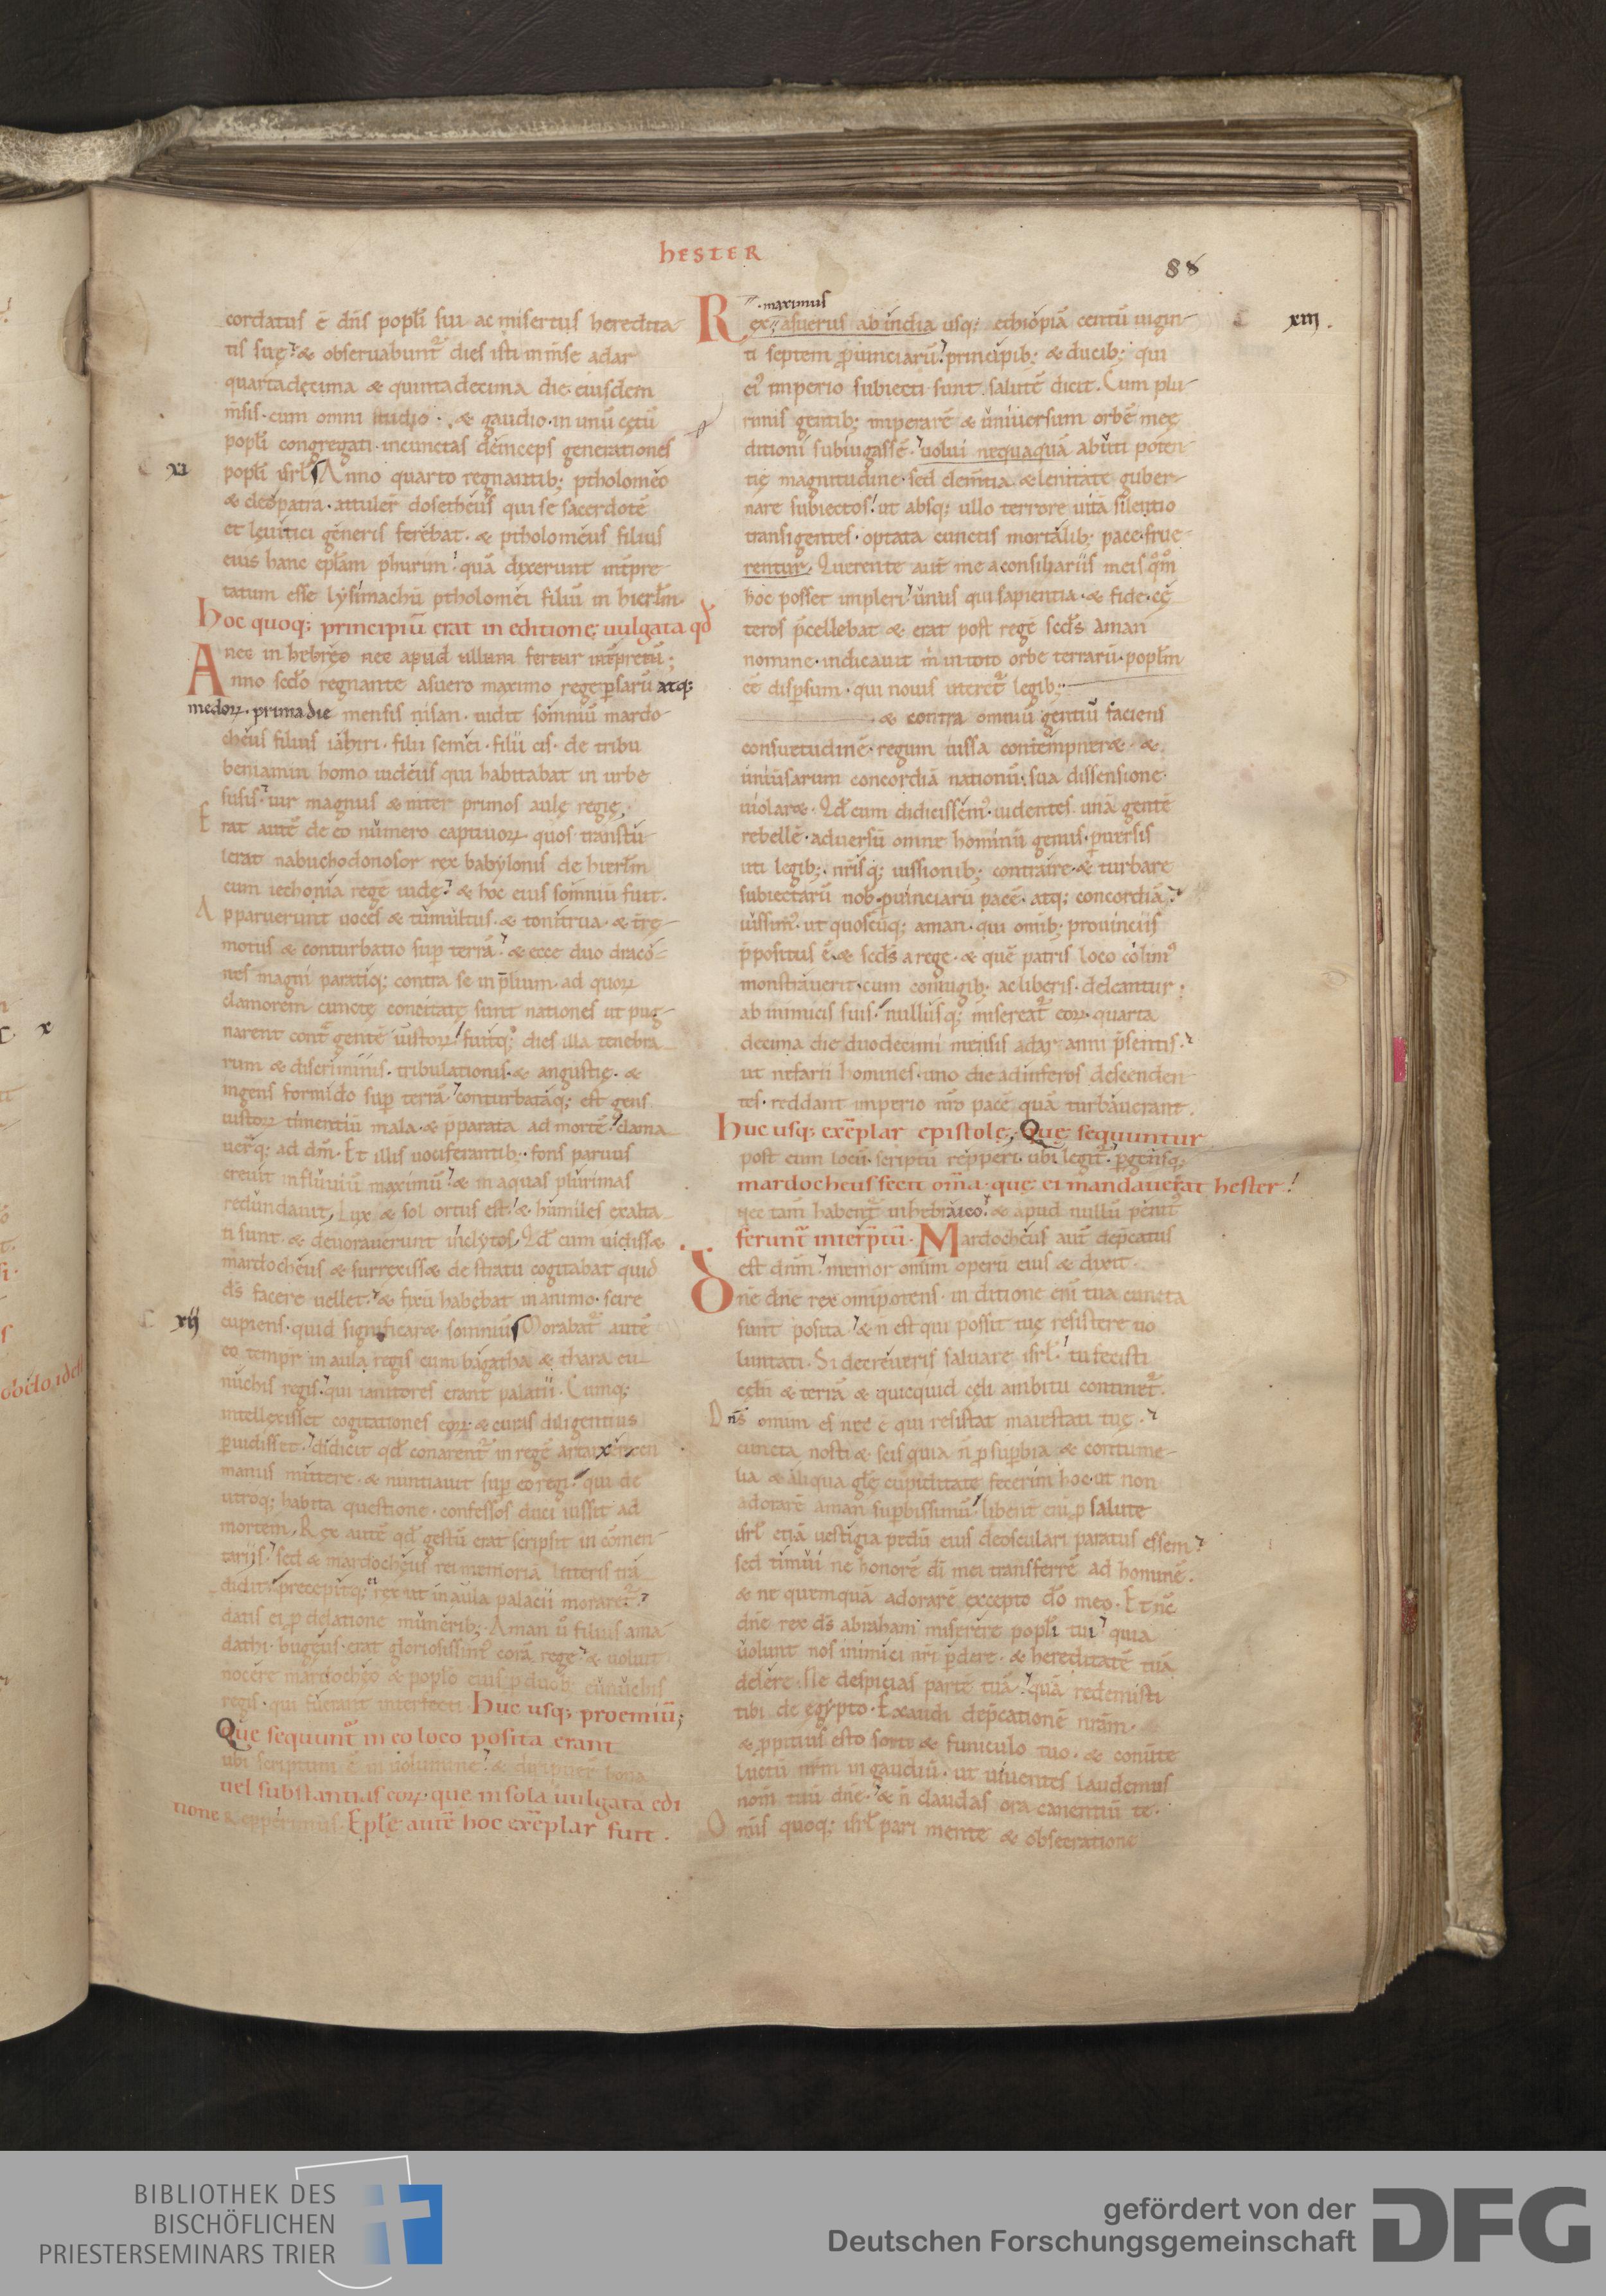 hESTER
88
cordatus ē dn̄s popl̄i sui ac misertus heredita-
tis suę. & obseruabunt dies isti mīnse adar
quartadecima & quintadecima die eiusdem
m̄sis. cum omni studio. & gaudio. in unū cętū
popl̄i congregati. incunctas deinceps generationes
xi
popl̄i isrl̄. Anno quarto regnantib; ptholomeo
& cleopatra. attuler̄ dositheus qui se sacerdotē
et leuitici generis ferebat. & ptholomeus filius
eius hanc epl̄am phurim. quā dixerunt int̄pre
tatum esse lysimachū ptholomei filiū in hierl̄m.
hoc quoq; principiū erat in editione uulgata qd̄
nec in hebreo nec apud ullum fertur int̄pretū;
Anno sc̄do regnante asuero maximo rege psarū atq;
medoꝝ. prima die mensis nisan. uidit somniū mardo-
cheus filius iahiri. filii semei. filii cis. de tribu
beniamin homo iudeus qui habitabat in urbe
susis. uir magnus & inter primos aulę regię.
Erat autē de eo numero captiuoꝝ quos transtu-
lerat nabuchodonosor rex babylonis de hierl̄m
cum iechonia rege iudę. & hoc eius somniū fuit.
Apparuerunt uoces & tumultus. & tonitrua. & t̄rę-
motus & conturbatio sup terrā. & ecce duo draco-
nes magni paratiq; contra se in p̄lium. ad quoꝝ
clamorem cunctę concitatę sunt nationes ut pug-
narent cont̄ gentē iustoꝝ. fuitq; dies illa tenebra
rum & discriminis. tribulationis. & angustię. &
ingens formido sup terrā. conturbataq; est gens
iustoꝝ timentiū mala. & pparata ad mortē. clama
uer̄q; ad dm̄. Et illis uociferantib; fons paruus
creuit in fluuiū maximū. & in aquas plurimas
redundauit. Lux & sol ortus est. & humiles exalta
ti sunt. & deuorauerunt inclytos. Qd̄ cum uidiss&
mardocheus & surrexiss& de stratu cogitabat quid
ds̄ facere uellet. & fixū habebat in animo. scire
xii
cupiens. quid significar& somniū. Morabat̄ autē
eo tempr̄ in aula regis cum bagatha & thara eu-
nuchis regis. qui ianitores erant palatii. Cumq;
intellexisset cogitationes eoꝝ. & curas diligentius
puidisset. didicit qd̄ conarent̄ in regē artaxerxen
manus mittere. & nuntiauit sup eo regi. qui de
utroq; habita questione. confessos duci iussit ad
mortem. Rex autē qd̄ gestū erat scripsit in cōmen-
tariis. sed & mardocheus rei memoriā litteris tra
didit. precepitq; ei rex ut in aula palacii moraret̄.
datis ei p delatione munerib;. Aman ū filius ama
dathi. bugeus. erat gloriosissim̄ corā rege. & uoluit
nocere mardocheo & poplo eius p duob; eunuchis
regis. qui fuerant interfecti. huc usq; proemiū;
Que sequunt̄ in eo loco posita erant
ubi scriptum ē in uolumine. & diripuer̄ bona
uel substantias eoꝝ. que in sola uulgata edi
tione repperimus. Eplę autē hoc exēplar fuit.
xiii.
maximus
Rex asuerus ab india usq; ethiopiā centū uigin-
ti septem puinciarū. principib; & ducib; qui
ei imperio subiecti sunt. salutē dicit. Cum plu-
rimis gentib; imperarē & uniuersum orbē meę
ditioni subiugassē. uolui nequaquā abuti poten-
tię magnitudine. sed clem̄tia & lenitate guber-
nare subiectos. ut absq; ullo terrore uitā silentio
transigentes. optata cunctis mortalib; pace frue-
rentur. Querente aut̄ me a consiliariis meis q̊m̊
hoc posset impleri. unus qui sapientia. & fide. cę
teros p̄cellebat & erat post regē sc̄ds aman
nomine. indicauit m̄ in toto orbe terrarū. popl̄m
eē disp̄sum. qui nouis uteret̄ legib;
& contra omniū gentiū faciens
consuetudinē. regum iussa contempner&. &
uniūsarum concordiā nationū. sua dissensione
uiolar&. Qd̄ cum didicissem̄. uidentes unā gentē
rebellē. aduersū omne hominū genus. p̄uersis
uti legib;. nr̄isq; iussionib; contraire. & turbare
subiectarū nob. puinciarū pacē. atq; concordiā.
iussim̄. ut quoscūq; aman. qui omib; prouinciis
p̄positus ē. & sc̄ds a rege. & quē patris loco colim̄
monstrauerit. cum coniugib; ac liberis. deleantur;
ab inimicis suis. nullusq; misereat̄ eoꝝ. quarta
decima die duodecimi mensis adar anni p̄sentis.
ut nefarii homines. uno die ad inferos descenden-
tes. reddant imperio nr̄o pacē quā turbauerant.
huc usq; exēplar epistolę. Quę sequuntur
post eum locū. scriptū repperi. ubi legit̄. p̄gensq;
mardocheus fecit om̄a. quę ei mandauerat hester!
nec tam̄ habent̄ in hebraico. & apud nullū penit̄
ferunt̄ interp̄tū. Mardocheus aut̄ dep̄catus
est dn̄m. memor om̄ium operū eius & dixit.
Dn̄e dn̄e rex omīpotens. in ditione eni tua cuncta
sunt posita. & n̄ est qui possit tuę resistere uo
luntati. Si decreueris saluare isrl̄. tu fecisti
cęlū & terrā & quicquid cęli ambitu continet̄.
Dn̄s omium es nec ē qui resistat maiestati tuę.
cuncta nosti & scis quia n̄ p supbia & contume-
lia & aliqua gl̄e cupiditate fecerim hoc. ut non
adorarē aman supbissimū. libent̄ eni p salute
isrl̄ etiā uestigia pedū eius deosculari paratus essem.
sed timui ne honorē di mei transferrē ad hominē.
& ne quemquā adorarē excepto do meo. Et nc̄
dn̄e rex ds̄ abraham miserere popl̄i tui. quia
uolunt nos inimici nr̄i pdere. & hereditatē tuā
delere. Ne despicias partē tuā. quā redemisti
tibi de egypto. Exaudi dep̄cationē nr̄am.
& ppitius esto sorti & funiculo tuo. & conūte
luctū nr̄m in gaudiū. ut uiuentes laudemus
nom̄ tuū dn̄e. & n̄ claudas ora canentiū te.
Omis quoq; isrl̄ pari mente & obsecratione
c. x
BIBLIOTHEK DES
BISCHÖFLICHEN
PRIESTERSEMINARS TRIER
gefördert von der
Deutschen Forschungsgemeinschaft
DFG